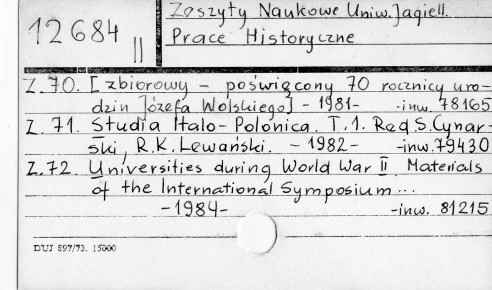 Zeszyty Naukowe Uniw. Jagiell.
12684 II Prace Historyczne
Z. 70. [zbiorowy - poświęcony 70 rocznicy uro-
dzin Józefa Wolskiego] - 1981- -inw. 78165
Z. 71. Studia Italo-Polonica. T. 1. Red. S. Cynar-
ski, R. K. Lewański. - 1982- -inw. 79430
Z. 72. Universities during World War II. Materials
of the International Symposium ...
-1984- -inw. 81215
DUJ 897/73. 15000